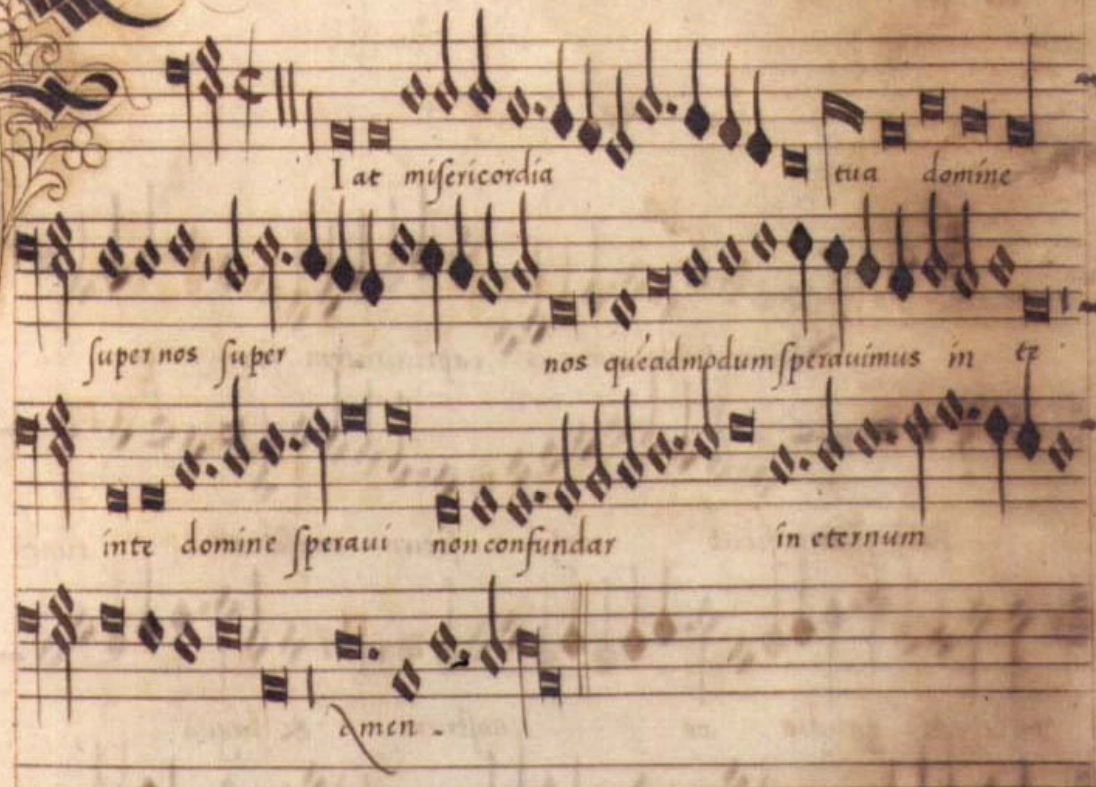 Iat misericordia tua domine
super nos super nos quéadmodum speravimus in te
in te domine speravi non confundar in eternum
amen